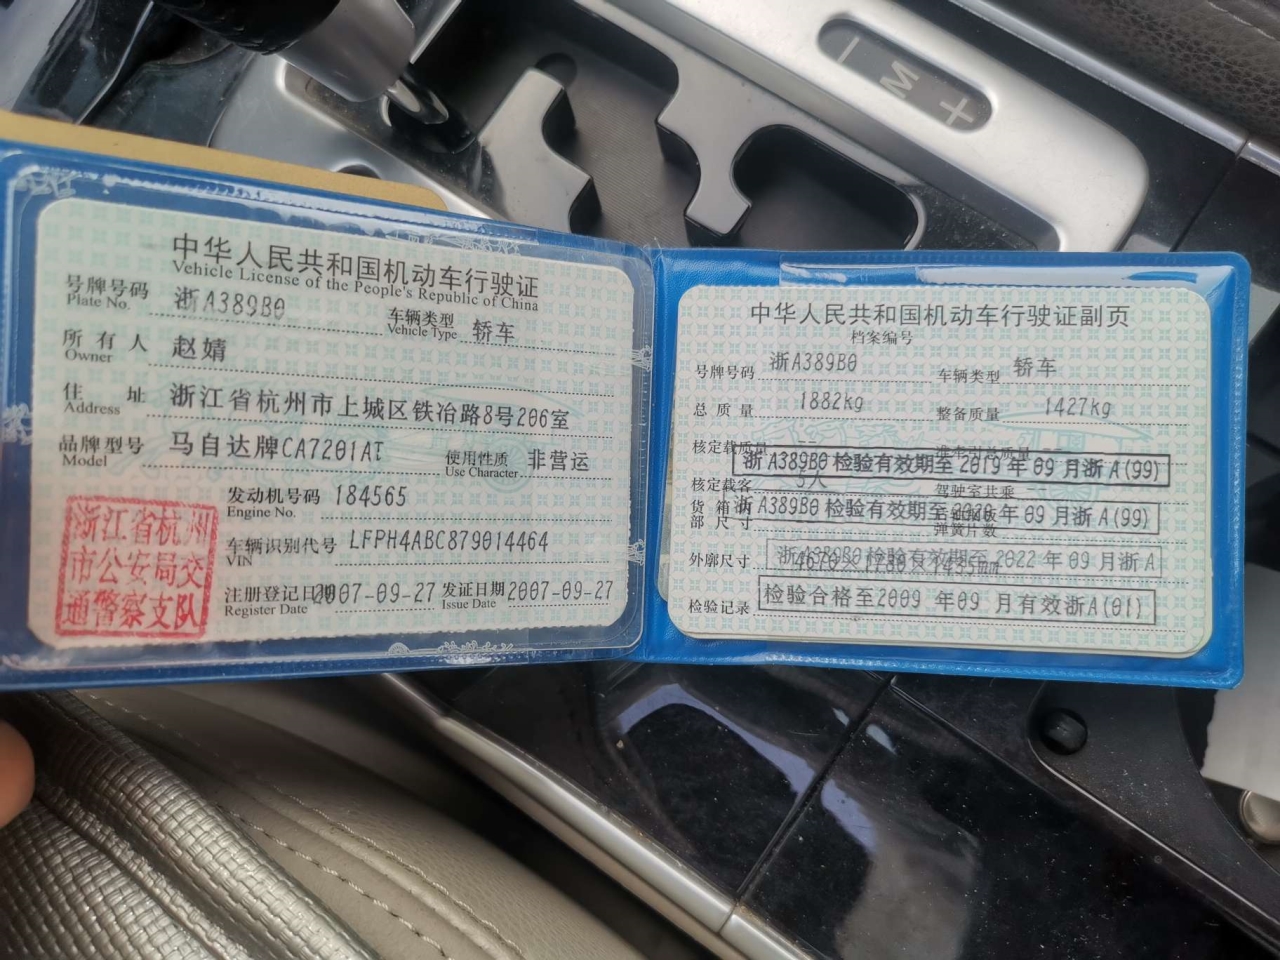 − M +
中华人民共和国机动车行驶证
Vehicle License of the People's Republic of China
号牌号码 浙A389B0 车辆类型 轿车
Plate No. Vehicle Type
所有人 赵婧
Owner
住址 浙江省杭州市上城区铁冶路8号206室
Address
品牌型号 马自达牌CA7201AT 使用性质 非营运
Model Use Character
发动机号码 184565
Engine No.
车辆识别代号 LFPH4ABC879014464
VIN
注册登记日期 2007-09-27 发证日期 2007-09-27
Register Date Issue Date
浙江省杭州
市公安局交
通警察支队
中华人民共和国机动车行驶证副页
档案编号
号牌号码 浙A389B0 车辆类型 轿车
总质量 1882kg 整备质量 1427kg
核定载质量 -- 准牵引总质量 --
浙A389B0 检验有效期至 2019 年 09 月浙A(99)
核定载客 5人 驾驶室共乘
货箱内部尺寸
浙A389B0 检验有效期至 2020 年 09 月浙A(99)
弹簧片数
外廓尺寸
浙A389B0 检验有效期至 2022 年 09 月浙A
检验记录 检验合格至2009 年09 月有效浙A(01)